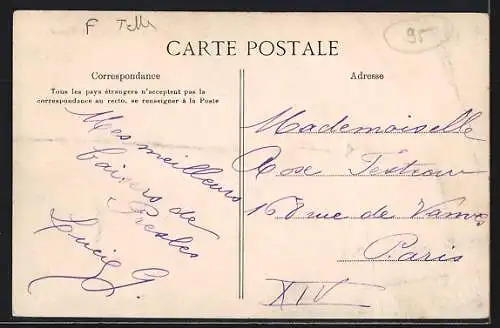 F
95
CARTE POSTALE
Correspondance
Tous les pays étrangers n'acceptent pas la
correspondance au recto, se renseigner à la Poste
Mes meilleurs
baisers de
Presles
Lucie G.
Adresse
Mademoiselle
Rose
168 rue de Vanves
Paris
XIV